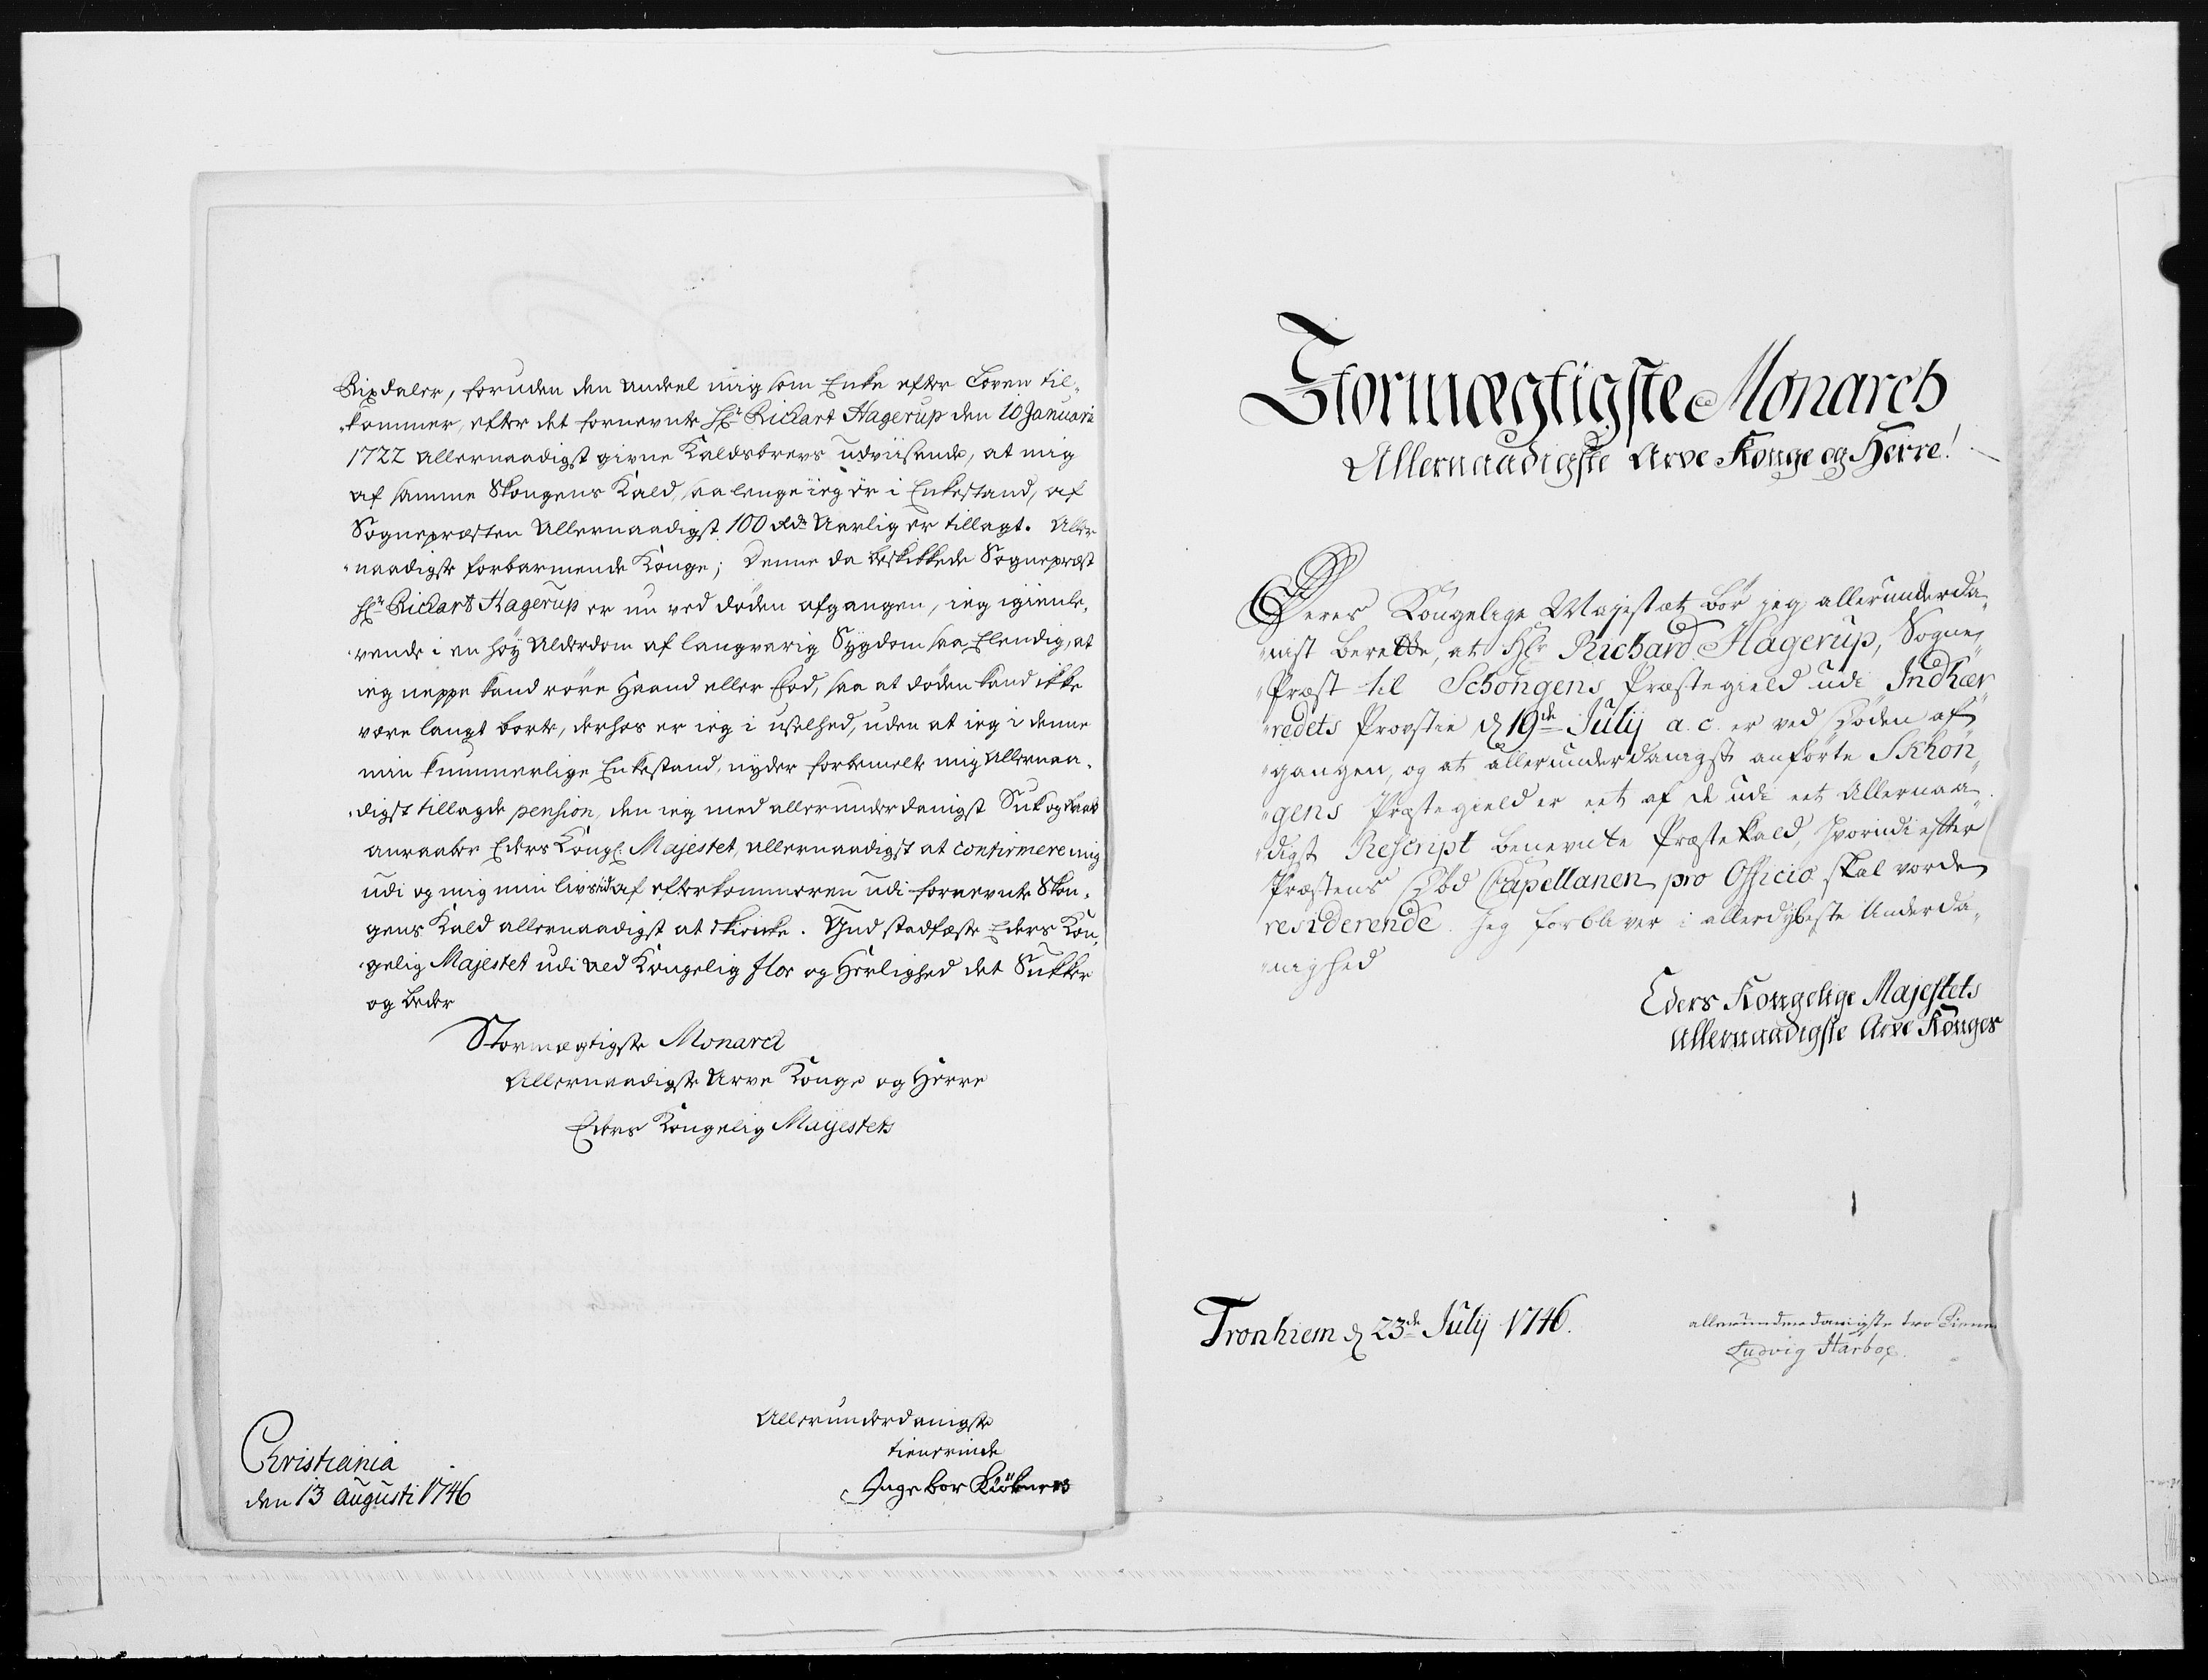 Rixdaler, foruden den Andeel mig som Enke efter Loven til-
kommer, efter det fornevnte Hr Richart Hagerup den 10 Januari
1722 Allernaadigst givne Kaldsbrevs udviisende, at mig
af samme Skongens Kald, saa lenge ieg er i Enkestand, af
Sognepræsten Allernaadigst 100 Rdr Aarlig er tillagt. Aller
naadigste forbarmende Konge; Denne da beskikkede Sognepræst
Hr Richart Hagerup er nu ved døden afgangen, ieg igienle-
vende i en høy Alderdom af langvarig Sygdom saa Elendig, at
ieg neppe kand røre Haand eller Fod, saa at døden kand ikke
være langt borte, derhos er ieg i uselhed, uden at ieg i denne
min kummerlige Enkestand, nyder forbemelte mig Allernaa-
digst tillagde pension, den ieg med allerunderdanigst Suk og
anraaber Eders Kongl: Majestet, allernaadigst at confirmere mig
udi og mig min livstid af efterkommeren udi fornevnte Skon-
gens Kald allernaadigst at skienke. Gud stadfæste Eders Kon-
gelig Majestet udi ald Kongelig flor og Herlighed det Sukker
og beder
Stormægtigste Monarch
Allernaadigste Arve Konge og Herre
Eders Kongelig Mayestets
Allerunderdanigste
tienerinde
Ingebor
Christiania
den 13 Augusti 1746
Stormægtigste Monarch
Allernaadigste Arve Konge og Herre!
Deres Kongelige Majestæt bør jeg allerunderda-
nigst berette, at Hr Richard Hagerup, Sogne-
Præst til Schongens Præstegield udi Indhær-
redets Provstie d 19de Julij a. c. er ved Døden af-
gangen, og at allerunderdanigst anførte Skhon-
gens Præstegield er eet af de udi eet Allernaa-
digst Rescript benevnte Præstekald, hvorudi efter
Præstens Død Capellanen pro Officio skal vorde
residerende. Jeg forbliver i allerdybeste Underda-
nighed
Eders Kongelige Majestets
Allernaadigste Arve Konges
Tronhiem d 23de Julij 1746.
allerunderdanigste tro Tiener
Ludvig Harboe.